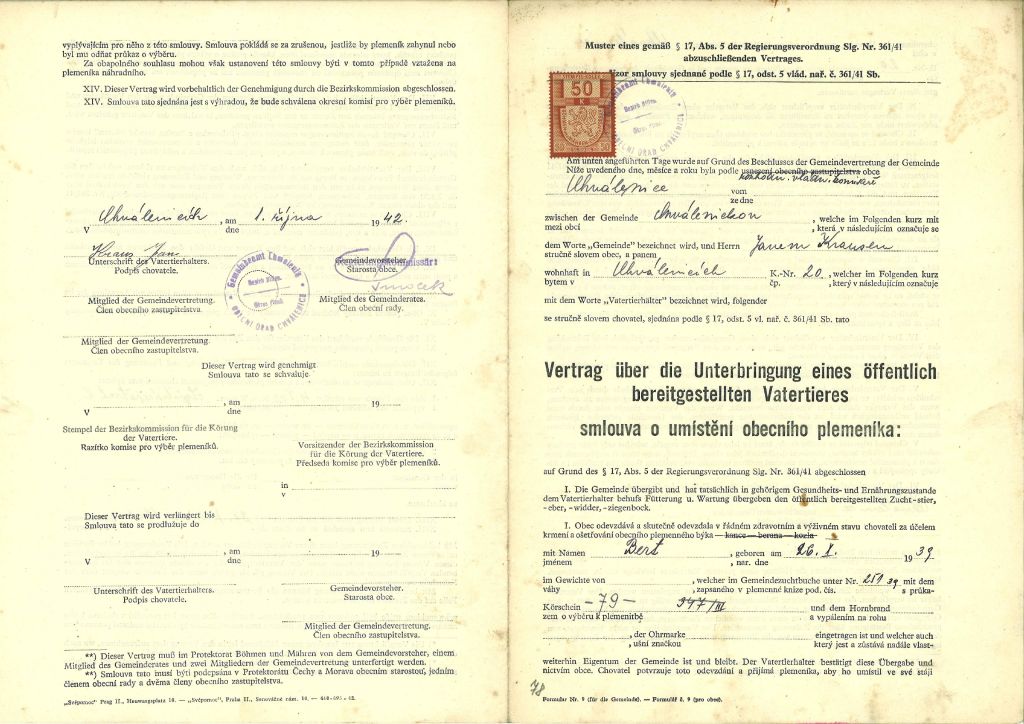 vyplývajícím pro něho z této smlouvy. Smlouva pokládá se za zrušenou, jestliže by plemeník zahynul nebo
byl mu odňat průkaz o výběru.
Za obapolného souhlasu mohou však ustanovení této smlouvy býti v tomto případě vztažena na
plemeníka náhradního.
XIV. Dieser Vertrag wird vorbehaltlich der Genehmigung durch die Bezirkskommission abgeschlossen.
XIV. Smlouva tato sjednána jest s výhradou, že bude schválena okresní komisí pro výběr plemeníků.
Chválenicích, am 1. října 1942.
V dne
Kraus Jan
Unterschrift des Vatertierhalters.
Podpis chovatele.
Gemeindevorsteher.
Starosta obce.
Smoček
Mitglied der Gemeindevertretung.
Člen obecního zastupitelstva.
Mitglied des Gemeinderates.
Člen obecní rady.
OBECNÍ ÚŘAD CHVÁLENICE
Mitglied der Gemeindevertretung.
Člen obecního zastupitelstva.
Dieser Vertrag wird genehmigt
Smlouva tato se schvaluje
, am 19
V dne
Stempel der Bezirkskommission für die Körung
der Vatertiere.
Razítko komise pro výběr plemeníků.
Vorsitzender der Bezirkskommission
für die Körung der Vatertiere.
Předseda komise pro výběr plemeníků.
in
v
Dieser Vertrag wird verlängert bis
Smlouva tato se prodlužuje do
, am 19
V dne
Unterschrift des Vatertierhalters.
Podpis chovatele.
Gemeindevorsteher.
Starosta obce.
Mitglied der Gemeindevertretung.
Člen obecního zastupitelstva.
**) Dieser Vertrag muß im Protektorat Böhmen und Mähren von dem Gemeindevorsteher, einem
Mitglied des Gemeinderates und zwei Mitgliedern der Gemeindevertretung unterfertigt werden.
**) Smlouva tato musí býti podepsána v Protektorátu Čechy a Morava obecním starostou, jedním
členem obecní rady a dvěma členy obecního zastupitelstva.
„Svépomoc" Prag II., Heuwagsplatz 10. — „Svépomoc", Praha II., Senovážné nám. 10.
Muster eines gemäß § 17, Abs. 5 der Regierungsverordnung Slg. Nr. 361/41
abzuschließenden Vertrages.
Vzor smlouvy sjednané podle § 17, odst. 5 vlád. nař. č. 361/41 Sb.
50
K
OBECNÍ ÚŘAD CHVÁLENICE
Am unten angeführten Tage wurde auf Grund des Beschlusses der Gemeindevertretung der Gemeinde
Níže uvedeného dne, měsíce a roku byla podle usnesení obecního zastupitelstva obce
Chválenice vom
ze dne
zwischen der Gemeinde Chválenickou, welche im Folgenden kurz mit
mezi obcí , která v následujícím označuje se
dem Worte „Gemeinde" bezeichnet wird, und Herrn Janem Krausem
stručně slovem obec, a panem
wohnhaft in Chválenicích K.-Nr. 20, welcher im Folgenden kurz
bytem v čp. , který v následujícím označuje
mit dem Worte „Vatertierhälter" bezeichnet wird, folgender
se stručně slovem chovatel, sjednána podle § 17, odst. 5 vl. nař. č. 361/41 Sb. tato
Vertrag über die Unterbringung eines öffentlich
bereitgestellten Vatertieres
smlouva o umístění obecního plemeníka:
auf Grund des § 17, Abs. 5 der Regierungsverordnung Slg. Nr. 361/41 abgeschlossen
I. Die Gemeinde übergibt und hat tatsächlich in gehörigem Gesundheits- und Ernährungszustande
dem Vatertierhalter behufs Fütterung u. Wartung übergeben den öffentlich bereitgestellten Zucht-stier,
-eber, -widder, -ziegenbock.
I. Obec odevzdává a skutečně odevzdala v řádném zdravotním a výživném stavu chovateli za účelem
krmení a ošetřování obecního plemenného býka — kance — berana — kozla
mit Namen Bert, geboren am 26. X. 1939
jménem , nar. dne
im Gewichte von , welcher im Gemeindezuchtbuche unter Nr. 251 39 mit dem
váhy , zapsaného v plemenné knize pod. čís. s průka-
Körschein -79- 347/III und dem Hornbrand
zem o výběru k plemenitbě a vypálením na rohu
, der Ohrmarke eingetragen ist und welcher auch
, ušní značkou který jest a zůstává nadále vlast-
weiterhin Eigentum der Gemeinde ist und bleibt. Der Vatertierhalter bestätigt diese Übergabe und
nictvím obce. Chovatel potvrzuje toto odevzdání a přijímá plemeníka, aby ho umístil ve své stáji
78
Formular Nr. 9 (für die Gemeinde). — Formulář č. 9 (pro obec).